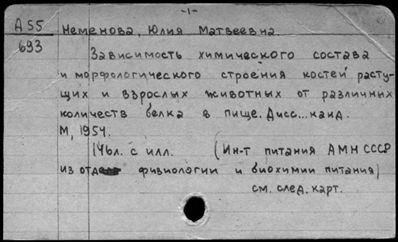 -1-
А55 Неменова, Юлия Матвеевна.
693
Зависимость химического состава
и морфологического строения костей расту-
щих и взрослых животных от различных
количеств белка в пище. Дисс... канд.
М, 1954.
146л. с илл. (Ин-т питания АМН СССР
из отдела физиологии и биохимии питания)
см. след. карт.